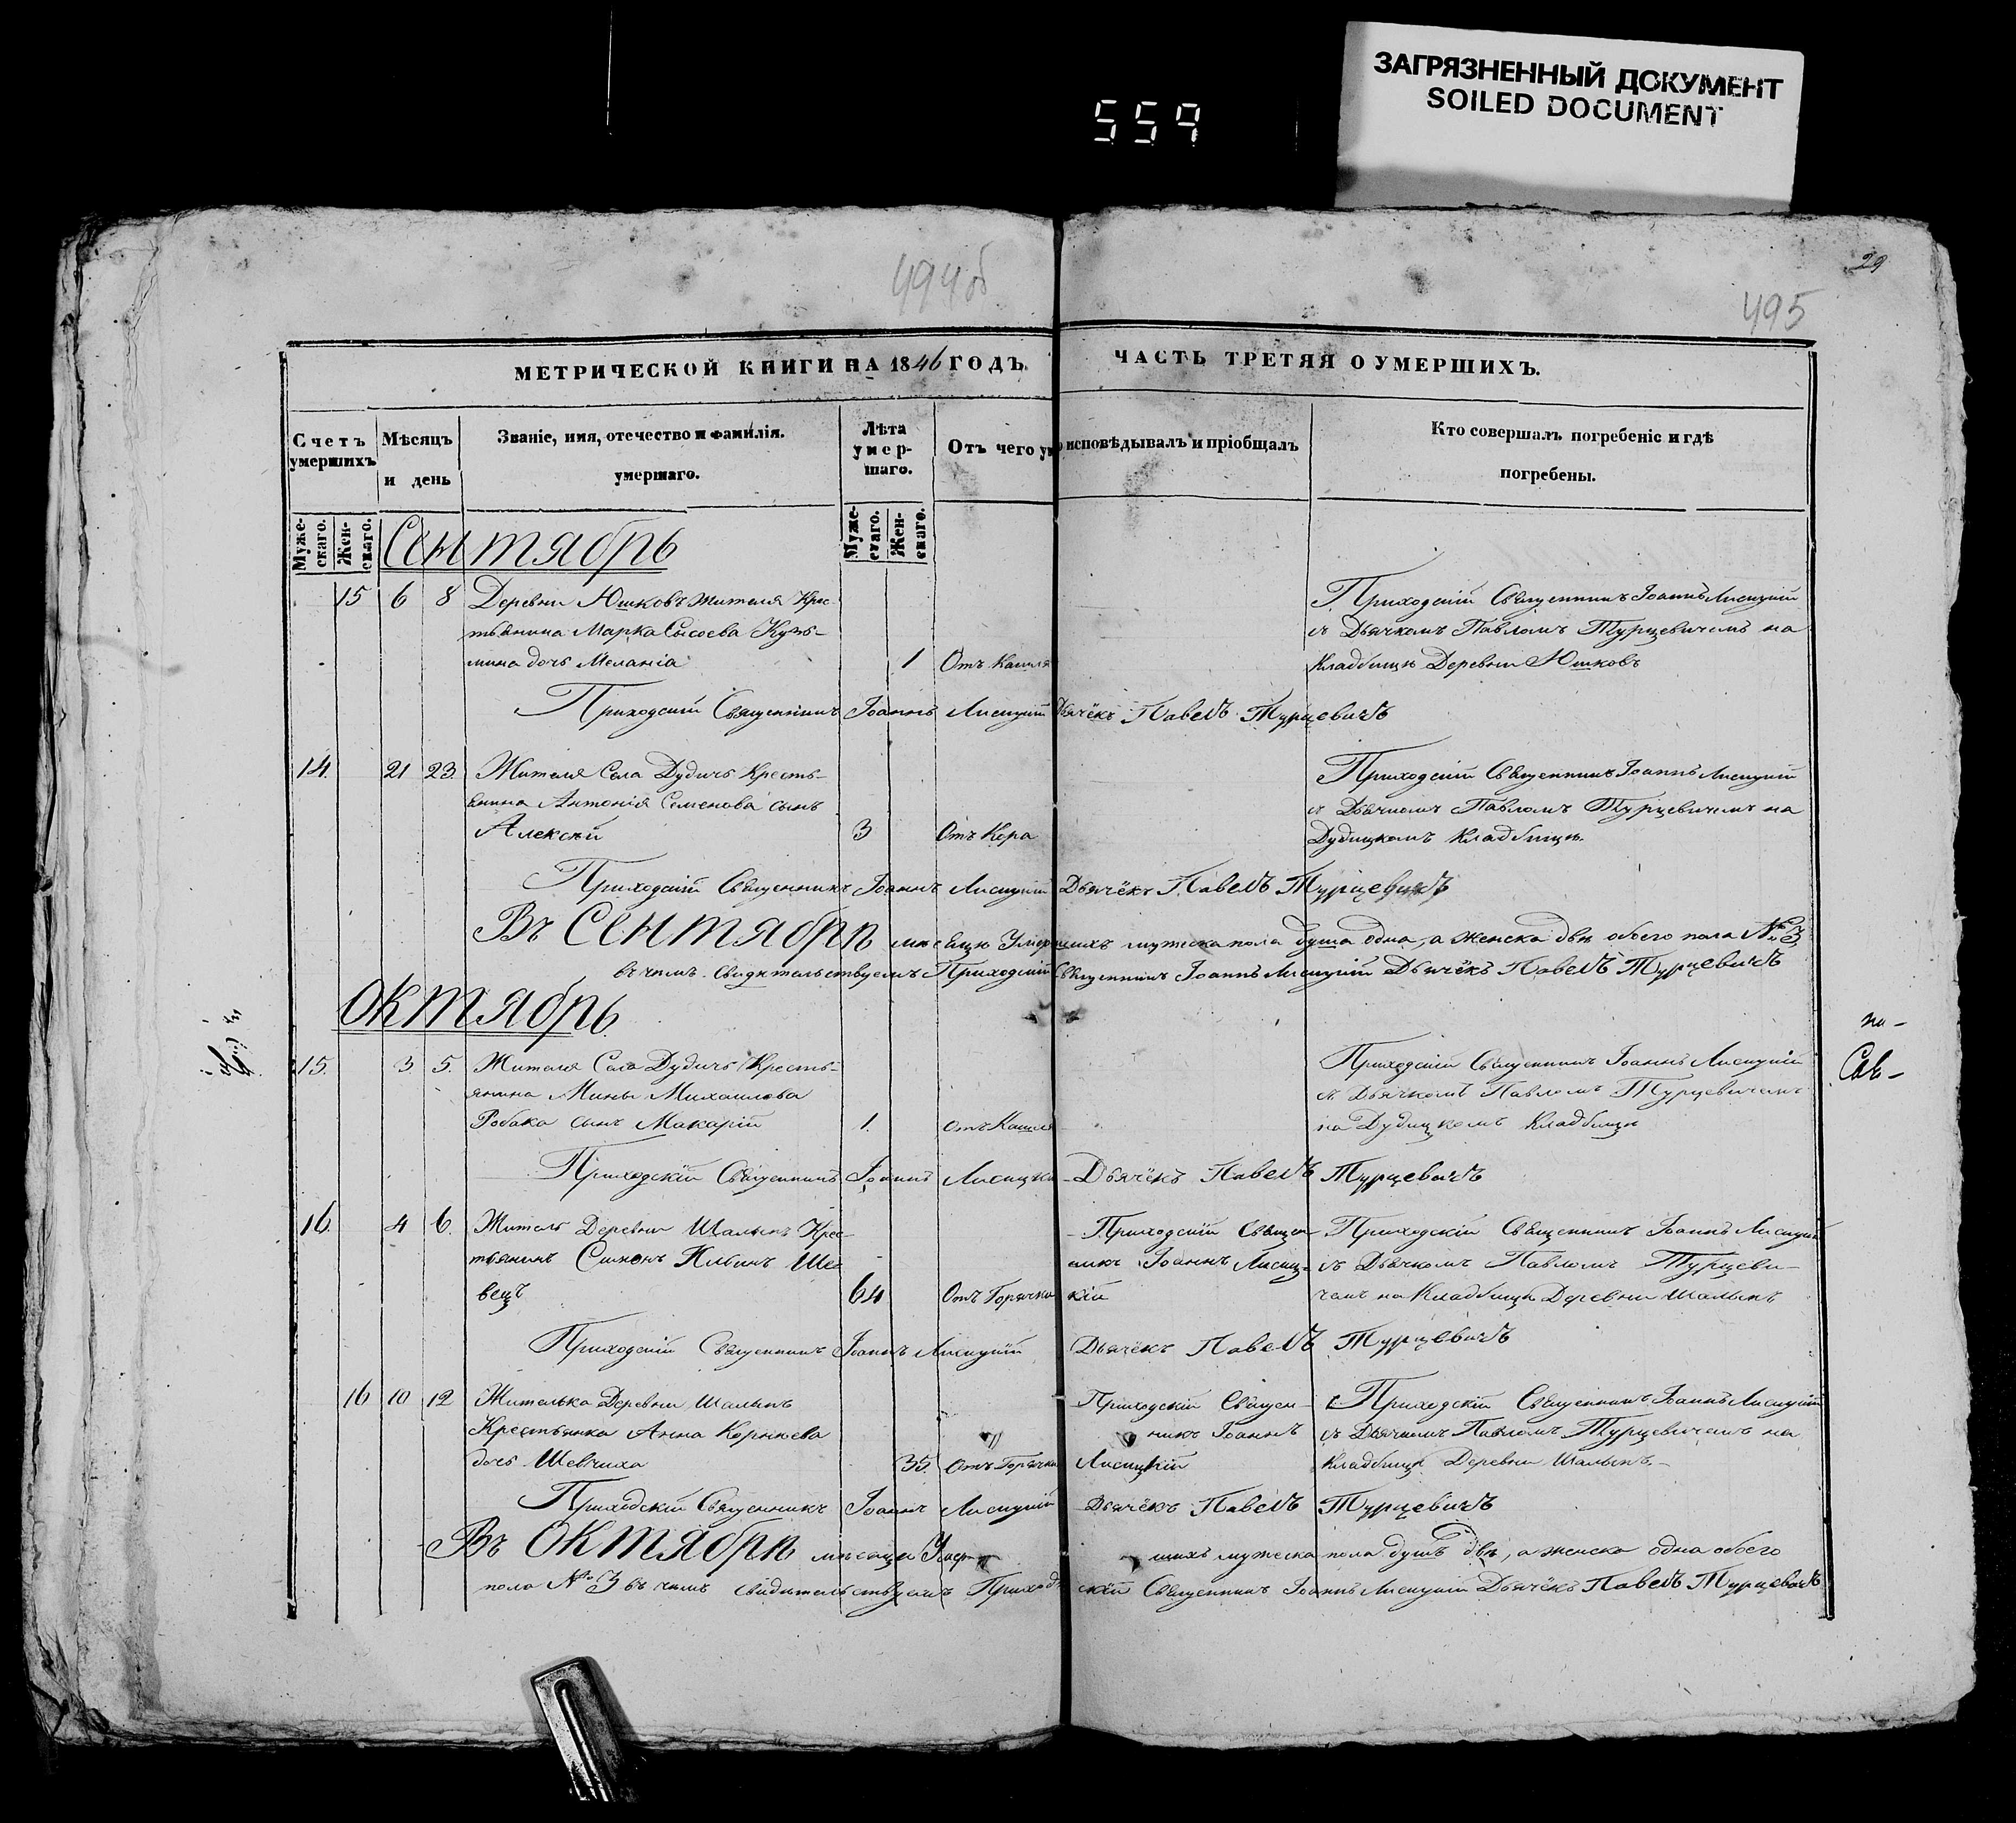 ЗАГРЯЗНЕННЫЙ ДОКУМЕНТ
SOILED DOCUMENT
559
29
494об
495
МЕТРИЧЕСКОЙ КНИГИ НА 1846 ГОДЪ. ЧАСТЬ ТРЕТЯЯ О УМЕРШИХЪ.
Счетъ умершихъ
Мѣсяцъ и день
Званіе, имя, отечество и фамилія.
умершаго.
Лѣта умер-
шаго.
Отъ чего ум
исповѣдывалъ и пріобщалъ
Кто совершалъ погребеніе и гдѣ
погребены.
Муже-
скаго.
Жен-
скаго.
Муже-
скаго.
Жен-
скаго.
Сентябрь
15 6 8 Деревни Юшковъ жителя Крес-
тьянина Марка Сысоева Кузь-
мина дочь Меланія 1 Отъ Кашля
Приходскій Священникъ Іоаннъ Лисицкій
съ Дьячкомъ Павломъ Турцевичемъ на
Кладбищѣ Деревни Юшковъ
Приходскій Священникъ Іоаннъ Лисицкій Дьячёкъ Павелъ Турцевичъ
14. 21 23. Жителя Села Дудичъ Кресть-
янина Антонія Семенова сынъ
Алексѣй 3 Отъ Кора
Приходскій Священникъ Іоаннъ Лисицкій
съ Дьячкомъ Павломъ Турцевичемъ на
Дудицкомъ Кладбищѣ.
Приходскій Священникъ Іоаннъ Лисицкій Дьячёкъ Павелъ Турцевичъ
Въ Сентябрѣ мѣсяцѣ Умершихъ мужеска пола душа одна, а женска двѣ обоего пола № 3
въ чемъ свидѣтельствуемъ Приходскій Священникъ Іоаннъ Лисицкій Дьячёкъ Павелъ Турцевичъ
Октябрь
на-
Сав-
15. 3 5. Жителя Села Дудичъ Кресть-
янина Мины Михаилова
Робака сынъ Макарій 1. отъ Кашля
Приходскій Священникъ Іоаннъ Лисицкій
съ Дьячкомъ Павломъ Турцевичемъ
на Дудицкомъ Кладбищѣ
Приходскій Священникъ Іоаннъ Лисицкі Дьячёкъ Павелъ Турцевичъ
16. 4 6. Житель Деревни Шалыпъ Крес-
тьянинъ Симонъ Ильинъ Ше-
вецъ 64 Отъ Горячки
Приходскій Священ-
никъ Іоаннъ Лисиц-
кій
Приходскій Священникъ Іоаннъ Лисицкій
съ Дьячкомъ Павломъ Турцеви-
чемъ на Кладбищѣ Деревни Шалыпъ
Приходскій Священникъ Іоаннъ Лисицкій Дьячёкъ Павелъ Турцевичъ
16 10 12 Жителька Деревни Шалыпъ
Крестьянка Анна Корнѣева
дочь Шевчиха 35. Отъ Горячки
Приходскій Священ-
никъ Іоаннъ
Лисицкій
Приходскій Священникъ Іоаннъ Лисицкій
съ Дьячкомъ Павломъ Турцевичемъ на
Кладбищѣ Деревни Шалыпъ.-
Приходскій Священникъ Іоаннъ Лисицкій Дьячёкъ Павелъ Турцевичъ
Въ Октябрѣ мѣсяцѣ Умершихъ мужеска пола душъ двѣ, а женска одна обоего
пола № 3 въ чемъ свидѣтельствуемъ Приходскій Священникъ Іоаннъ Лисицкій Дьячёкъ Павелъ Турцевичъ